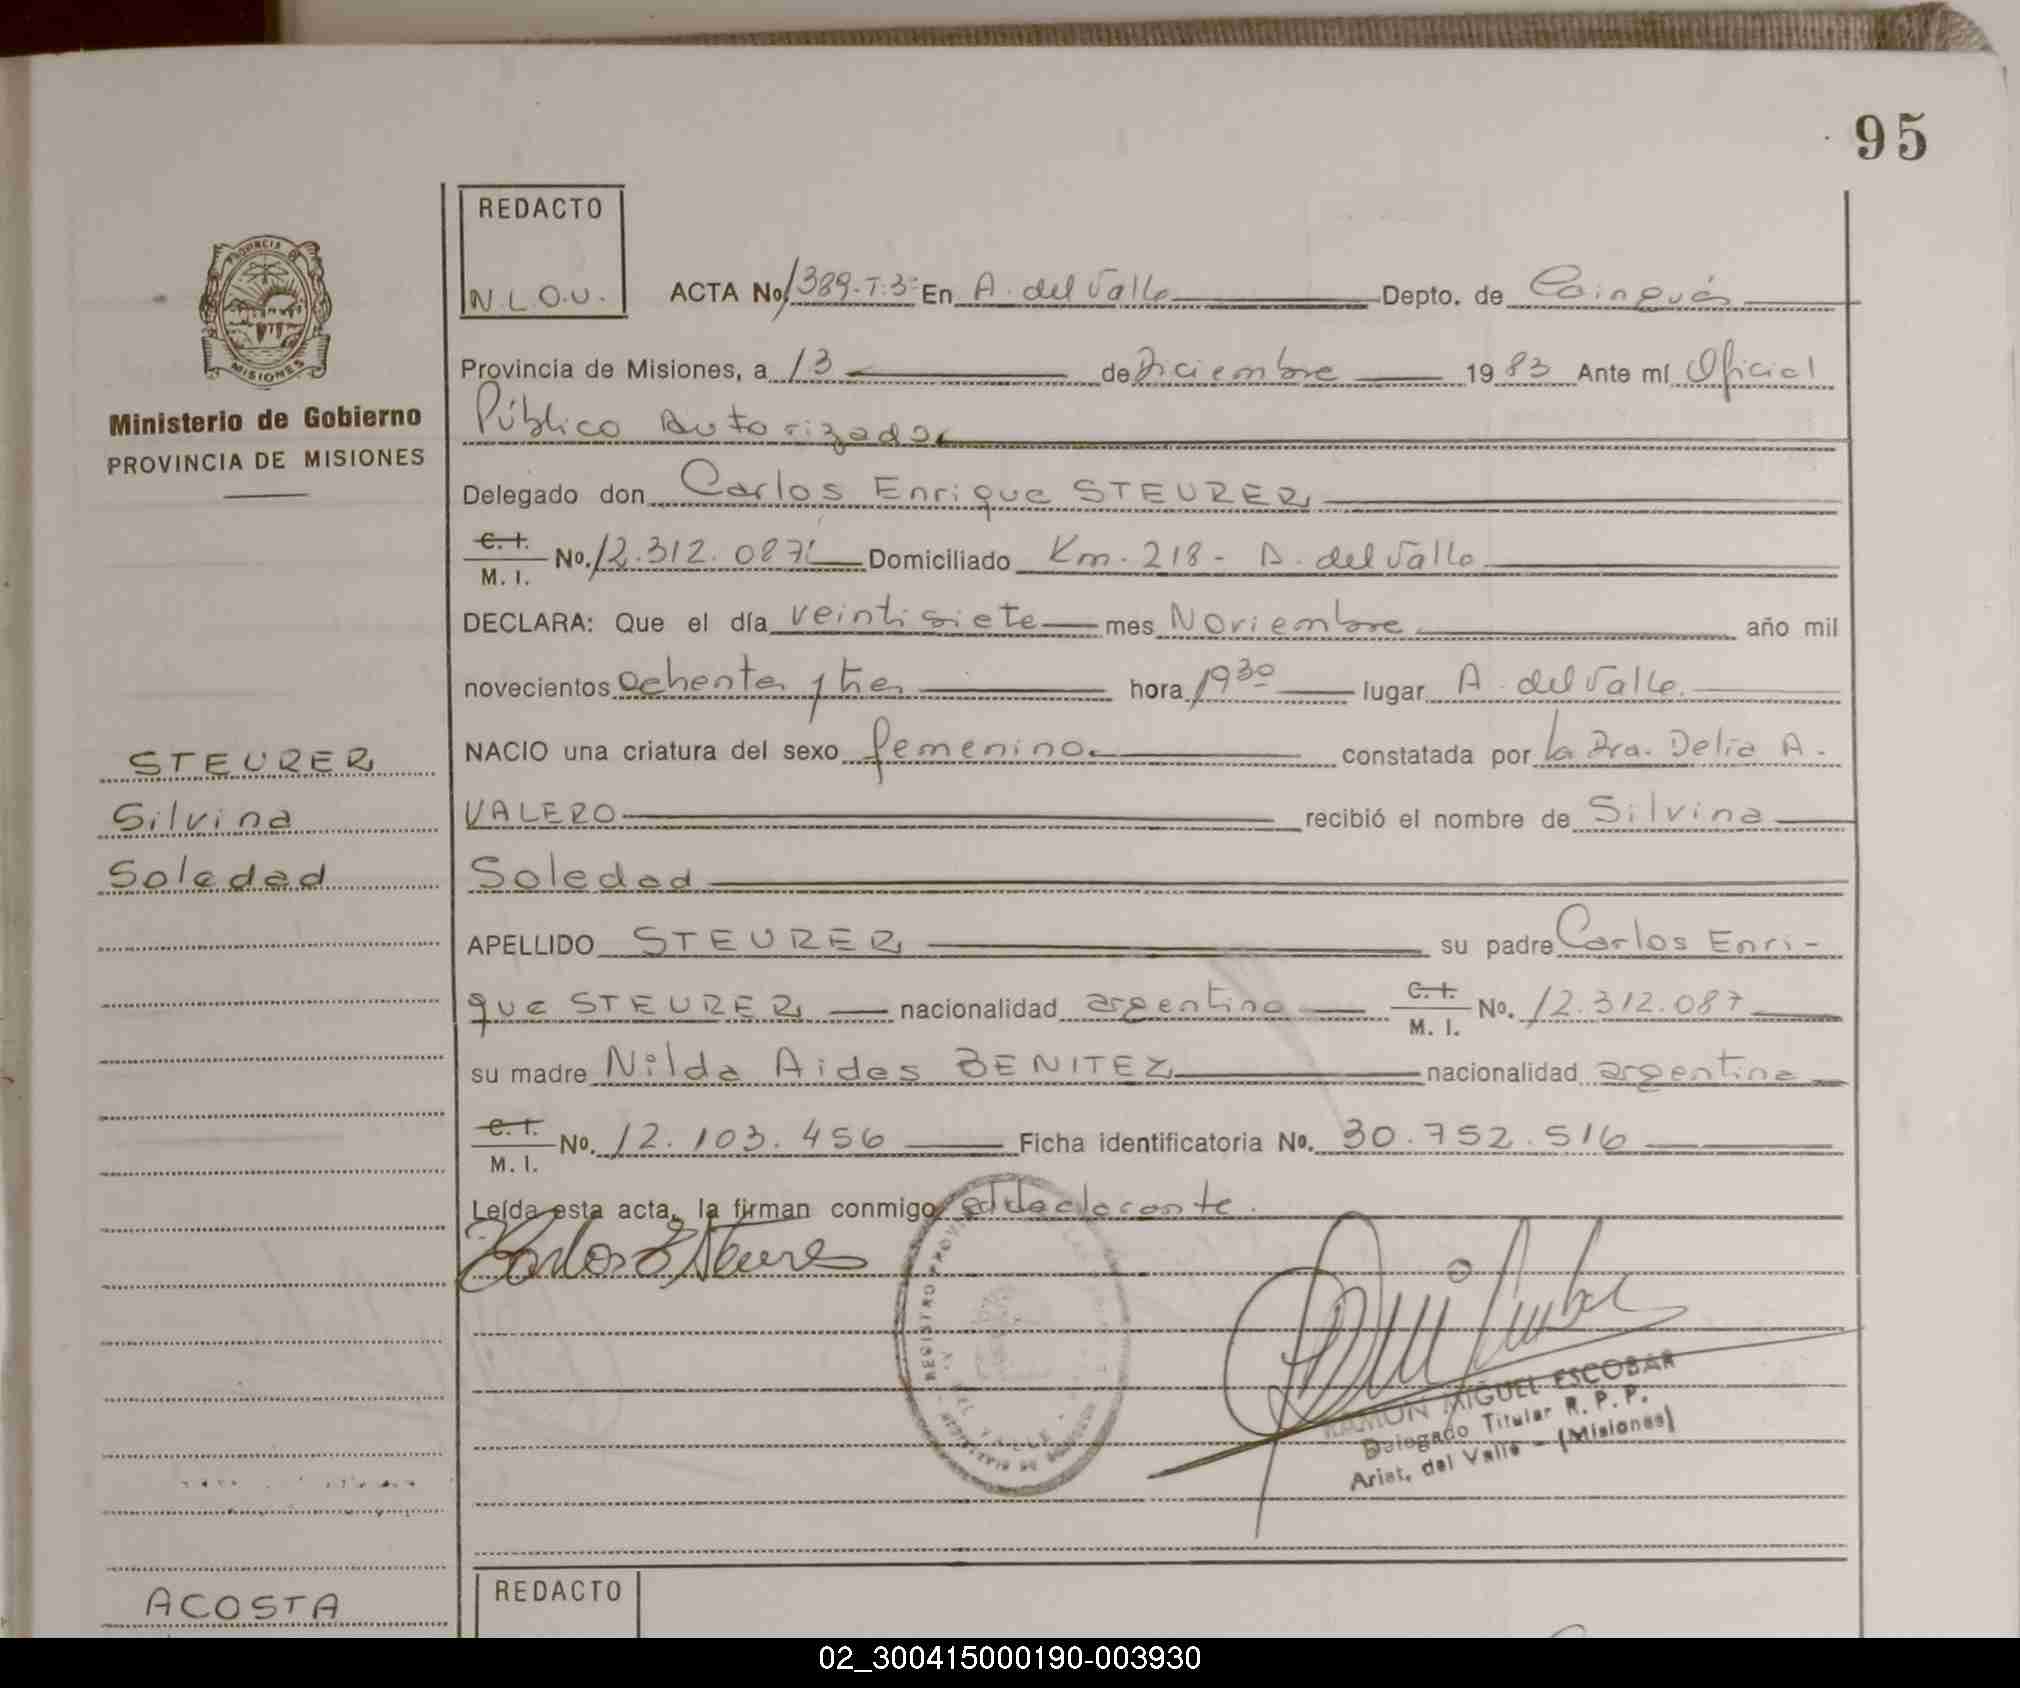 95
REDACTO
N.L.O.U.
PROVINCIA DE
MISIONES
Ministerio de Gobierno
PROVINCIA DE MISIONES
ACTA No 1389-T:3= En A. del Valle Depto. de Cainguás
Provincia de Misiones, a 13 de Diciembre 1983 Ante mí Oficial
Público Autorizador
Delegado don Carlos Enrique STEURER
C. I.
M. I. No. 12.312.087 Domiciliado Km. 218 - A. del Valle
DECLARA: Que el día veintisiete mes Noviembre año mil
novecientos ochenta y tres hora 19 30 lugar A. del Valle.
NACIO una criatura del sexo femenino. constatada por la Dra. Delia A.
VALERO recibió el nombre de Silvina
Soledad
APELLIDO STEURER su padre Carlos Enri-
que STEURER nacionalidad argentina C. I.
M. I. No. 12.312.087
su madre Nilda Aides BENITEZ nacionalidad argentina
C. I.
M. I. No. 12.103.456 Ficha identificatoria No. 30.752.516
Leída esta acta, la firman conmigo el declarante.
STEURER
Silvina
Soledad
Carlos E Steurer
REGISTRO PROVIN
DEL VALLE
RAMON MIGUEL ESCOBAR
Delegado Titular R. P. P.
Arist. del Valle - (Misiones)
ACOSTA
REDACTO
02_300415000190-003930